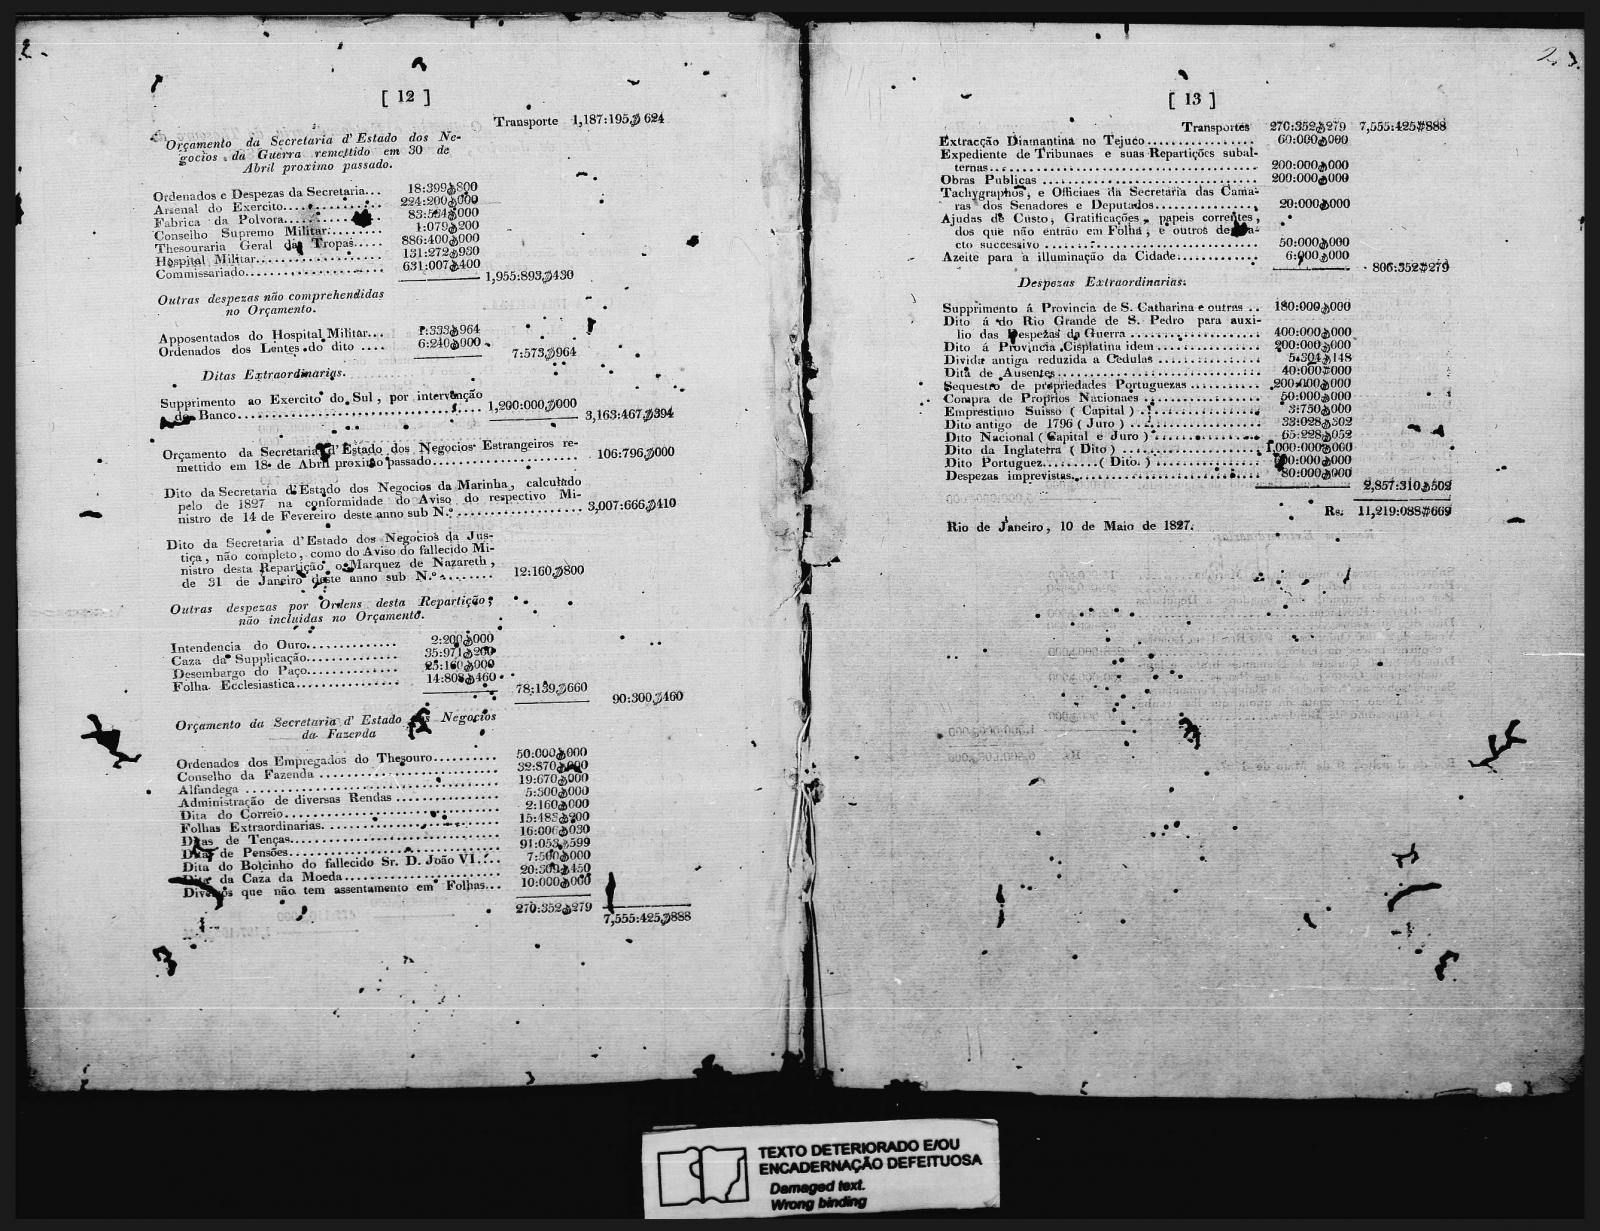 [ 12 ]
Transporte 1,187:195$624
Orçamento da Secretaria d'Estado dos Ne-
gocios da Guerra remettido em 30 de
Abril proximo passado.
Ordenados e Despezas da Secretaria... 18:399$800
Arsenal do Exercito................ 224:200$000
Fabrica da Polvora................ 83:534$000
Conselho Supremo Militar......... 1:079$200
Thesouraria Geral das Tropas..... 886:400$000
Hospital Militar................... 131:272$930
Commissariado................... 631:007$400
1,955:893$430
Outras despezas não comprehendidas
no Orçamento.
Apposentados do Hospital Militar... 1:333$964
Ordenados dos Lentes do dito .... 6:240$000
7:573$964
Ditas Extraordinarias.
Supprimento ao Exercito do Sul, por intervenção
do Banco................................. 1,200:000$000
3,163:467$394
Orçamento da Secretaria d'Estado dos Negocios Estrangeiros re-
mettido em 18 de Abril proximo passado..................... 106:796$000
Dito da Secretaria d'Estado dos Negocios da Marinha, calculado
pelo de 1827 na conformidade do Aviso do respectivo Mi-
nistro de 14 de Fevereiro deste anno sub N.º .................. 3,007:666$410
Dito da Secretaria d'Estado dos Negocios da Jus-
tiça, não completo, como do Aviso do fallecido Mi-
nistro desta Repartição o Marquez de Nazareth,
de 31 de Janeiro deste anno sub N.º ........ 12:160$800
Outras despezas por Ordens desta Repartição;
não incluidas no Orçamento.
Intendencia do Ouro.............. 2:200$000
Caza da Supplicação.............. 35:971$200
Desembargo do Paço.............. 25:160$000
Folha Ecclesiastica................ 14:808$460
78:139$660
90:300$460
Orçamento da Secretaria d'Estado dos Negocios
da Fazenda
Ordenados dos Empregados do Thesouro.......... 50:000$000
Conselho da Fazenda ........................... 32:870$000
Alfandega ..................................... 19:670$000
Administração de diversas Rendas ................ 5:300$000
Dita do Correio................................ 2:160$000
Folhas Extraordinarias......................... 15:483$200
Ditas de Tenças................................ 16:006$030
Ditas de Pensões............................... 91:053$599
Dita do Bolcinho do fallecido Sr. D. João VI.... 7:500$000
Dita da Caza da Moeda........................ 20:309$450
Diversos que não tem assentamento em Folhas... 10:000$000
270:352$279 7,555:425$888
[ 13 ]
Transportes 270:352$279 7,555:425$888
Extracção Diamantina no Tejuco................. 60:000$000
Expediente de Tribunaes e suas Repartições subal-
ternas....................................... 200:000$000
Obras Publicas ................................ 200:000$000
Tachygraphos, e Officiaes da Secretaria das Cama-
ras dos Senadores e Deputados............... 20:000$000
Ajudas de Custo, Gratificações, papeis correntes,
dos que não entrão em Folha, e outros de
cto successivo ............................... 50:000$000
Azeite para a illuminação da Cidade............ 6:000$000
806:352$279
Despezas Extraordinarias.
Supprimento á Provincia de S. Catharina e outras .. 180:000$000
Dito á do Rio Grande de S. Pedro para auxi-
lio das Despezas da Guerra ................... 400:000$000
Dito á Provincia Cisplatina idem ................ 200:000$000
Divida antiga reduzida a Cedulas ............... 5:304$148
Dita de Ausentes............................... 40:000$000
Sequestro de propriedades Portuguezas .......... 200:000$000
Compra de Proprios Nacionaes .................. 50:000$000
Emprestimo Suisso ( Capital ) ................... 3:750$000
Dito antigo de 1796 ( Juro ) .................... 33:028$302
Dito Nacional ( Capital e Juro ) ................. 65:228$052
Dito da Inglaterra ( Dito ) ..................... 1,000:000$000
Dito Portuguez.........( Dito. ) ................ 600:000$000
Despezas imprevistas........................... 80:000$000
2,857:310$502
Rs. 11,219:088$669
Rio de Janeiro, 10 de Maio de 1827.
TEXTO DETERIORADO E/OU
ENCADERNAÇÃO DEFEITUOSA
Damaged text.
Wrong binding